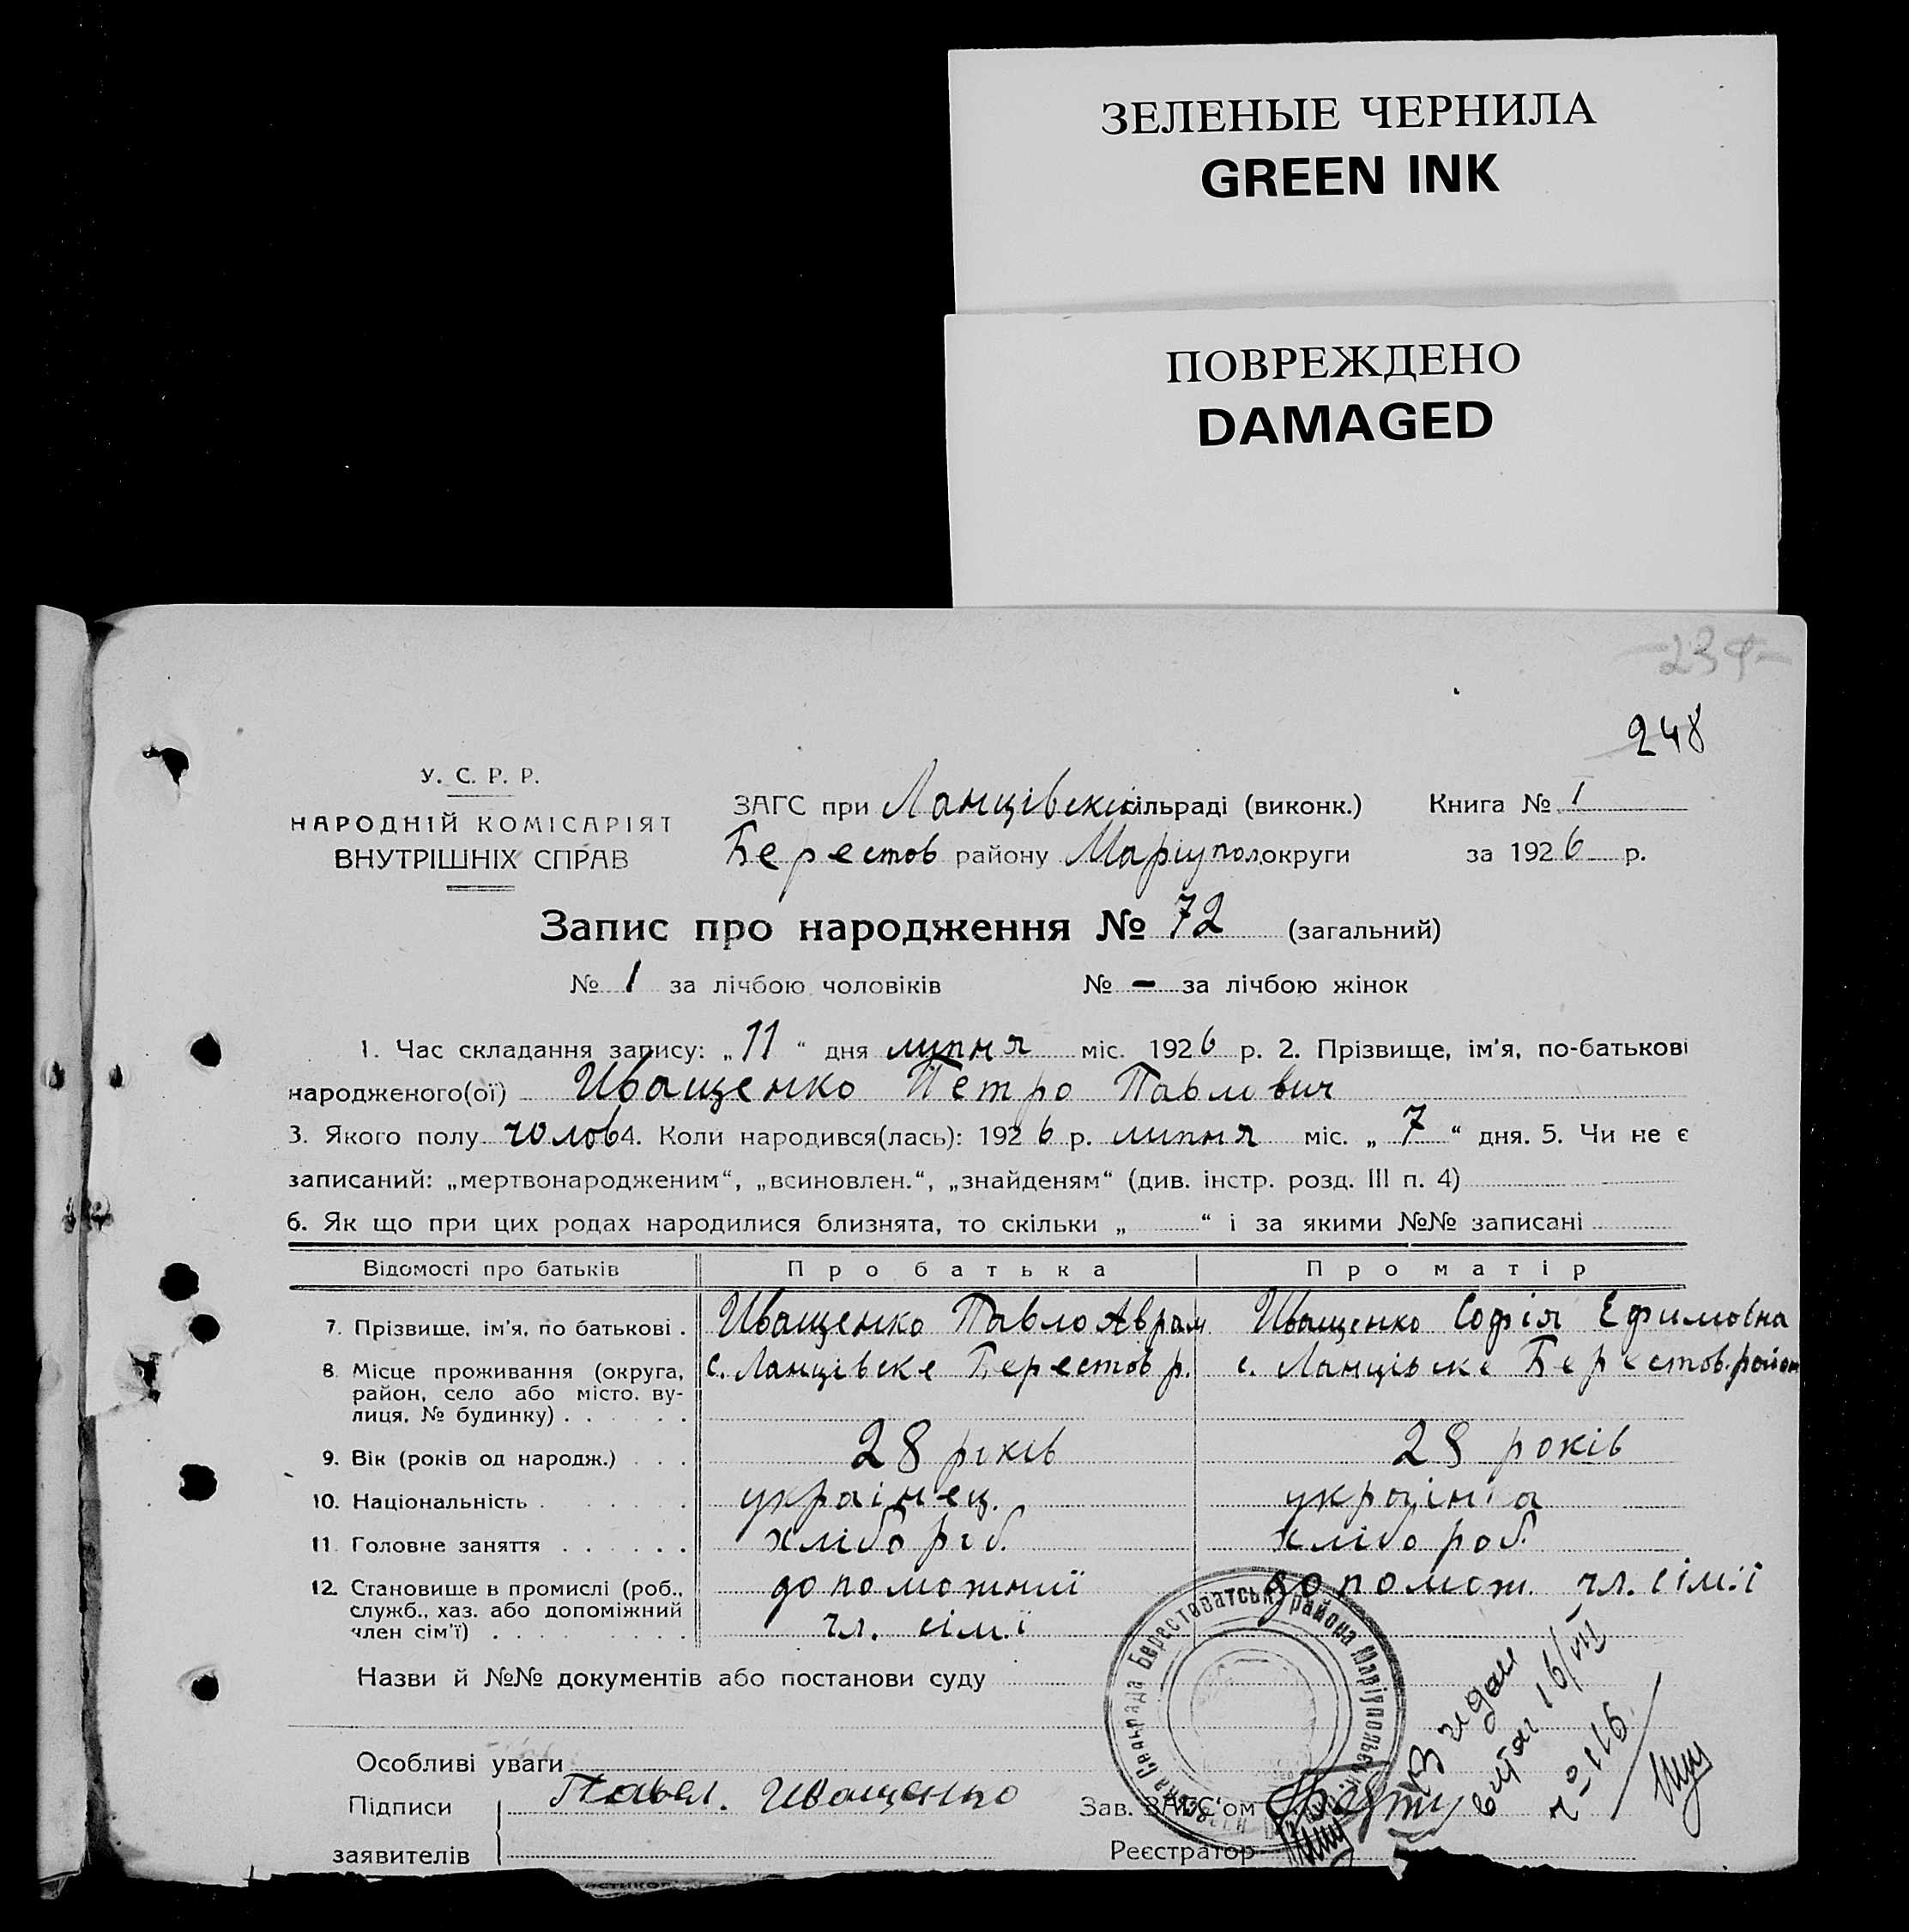 ЗЕЛЕНЫЕ ЧЕРНИЛА
GREEN INK
ПОВРЕЖДЕНО
DAMAGED
248
У. С. Р. Р.
НАРОДНІЙ КОМІСАРІЯТ
ВНУТРІШНІХ СПРАВ
ЗАГС при Ланцівскій сільраді (виконк.) Книга № I
Берестов району Маріупол. округи за 1926 р.
Запис про народження № 72 (загальний)
№ 1 за лічбою чоловіків № – за лічбою жінок
1. Час складання запису: „11“ дня липня міс. 1926 р. 2. Прізвище, ім'я, по-батькові
народженого(ої) Иващенко Петро Павлович
3. Якого полу чолов 4. Коли народився(лась): 1926 р. липня міс. „7“ дня. 5. Чи не є
записаний: „мертвонародженим“, „всиновлен.“, „знайденям“ (див. інстр. розд. III п. 4)
6. Як що при цих родах народилися близнята, то скільки „ “ і за якими №№ записані
Відомості про батьків Про батька Про матір
7. Прізвище, ім'я, по батькові . Иващенко Павло Аврам Иващенко Софія Ефимовна
8. Місце проживання (округа, с. Ланцівске Берестов р. с. Ланцівске Берестов. район
район, село або місто, ву-
лиця, № будинку) . . . . . .
9. Вік (років од народж.) . . . 28 років 28 років
10. Національність . . . . . . українец. українка
11. Головне заняття . . . . . . хлібороб. хлібороб.
12. Становище в промислі (роб., допоможний допомож. чл. сім.ї
служб., хаз. або допоміжний
член сім'ї) . . . . . . . . чл. сім.ї
Назви й №№ документів або постанови суду
Берестоватськ. района Маріупольс
Видан
витяг 16/VII
№ 116
Особливі уваги
Підписи Павел. Иващенко Зав. ЗАГС'ом
заявителів Реєстратор